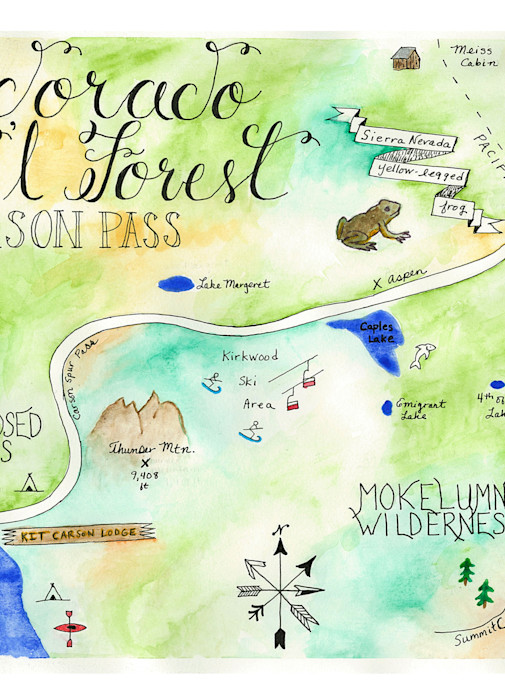 dorado
Meiss
Cabin
'l Forest
SON PASS
Sierra Nevada
yellow-legged
frog
PACIFI
Lake Margaret
X Aspen
Caples
Lake
Kirkwood
Ski
Area
Carson Spur Pass
Emigrant
Lake
4th of
Lak
OSED
S
Thunder Mtn.
X
9,408
ft
MOKELUMN
WILDERNES
KIT CARSON LODGE
N
Summit C